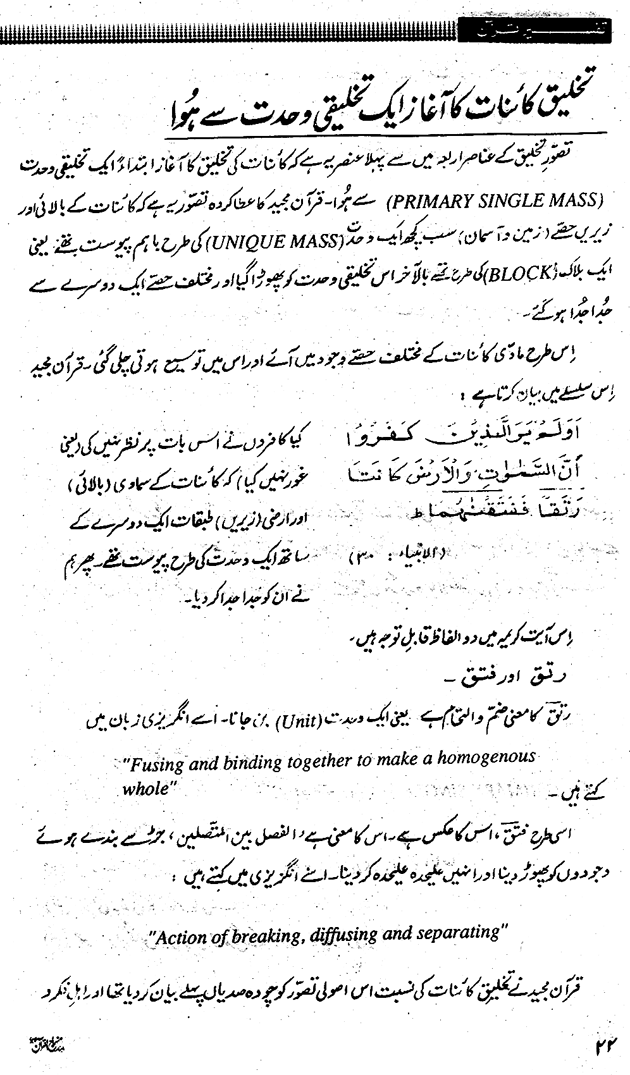 تفسیر قرآن
تخلیق کائنات کا آغاز ایک تخلیقی وحدت سے ہُوا
تصوّرِ تخلیق کے عناصرِ اربعہ میں سے پہلا عنصر یہ ہے کہ کائنات کی تخلیق کا آغاز ابتداءً ایک تخلیقی وحدت
(PRIMARY SINGLE MASS) سے ہُوا۔ قرآن مجید کا عطا کردہ تصوّر یہ ہے کہ کائنات کے بالائی اور
زیریں حصّے (زمین و آسمان) سب کچھ ایک وحدت (UNIQUE MASS) کی طرح باہم پیوست تھے یعنی
ایک بلاک (BLOCK) کی طرح تھے بالآخر اس تخلیقی وحدت کو پھوڑا گیا اور مختلف حصّے ایک دوسرے سے
جُدا جُدا ہو گئے۔
اِس طرح مادّی کائنات کے مختلف حصّے وجود میں آئے اور اس میں توسیع ہوتی چلی گئی۔ قرآن مجید
اِس سلسلے میں بیان کرتا ہے :
اَوَلَمْ يَرَ الَّذِيْنَ كَفَرُوْا
اَنَّ السَّمٰوٰتِ وَالْاَرْضَ كَانَتَا
رَتْقًا فَفَتَقْنٰهُمَا ط
(الانبیاء : ۳۰)
کیا کافروں نے اس بات پر نظر نہیں کی (یعنی
غور نہیں کیا) کہ کائنات کے سماوی (بالائی)
اور ارضی (زیریں) طبقات ایک دوسرے کے
ساتھ ایک وحدت کی طرح پیوست تھے۔ پھر ہم
نے ان کو جدا جدا کر دیا۔
اِس آیت کریمہ میں دو الفاظ قابلِ توجہ ہیں۔
رتق اور فتق ۔
رتق کا معنی ضم و التحام ہے یعنی ایک وحدت (Unit) بن جانا۔ اسے انگریزی زبان میں
"Fusing and binding together to make a homogenous
whole"
کہتے ہیں۔
اسی طرح فتق، اس کا عکس ہے۔ اس کا معنی ہے، الفصل بین المتصلین، جڑ سے بندے ہوئے
وجودوں کو پھوڑ دینا اور انہیں علیحدہ علیحدہ کر دینا۔ اسے انگریزی میں کہتے ہیں :
"Action of breaking, diffusing and separating"
قرآن مجید نے تخلیق کائنات کی نسبت اس اصولی تصوّر کو چودہ صدیاں پہلے بیان کر دیا تھا اور اہلِ فکر کو
۲۲